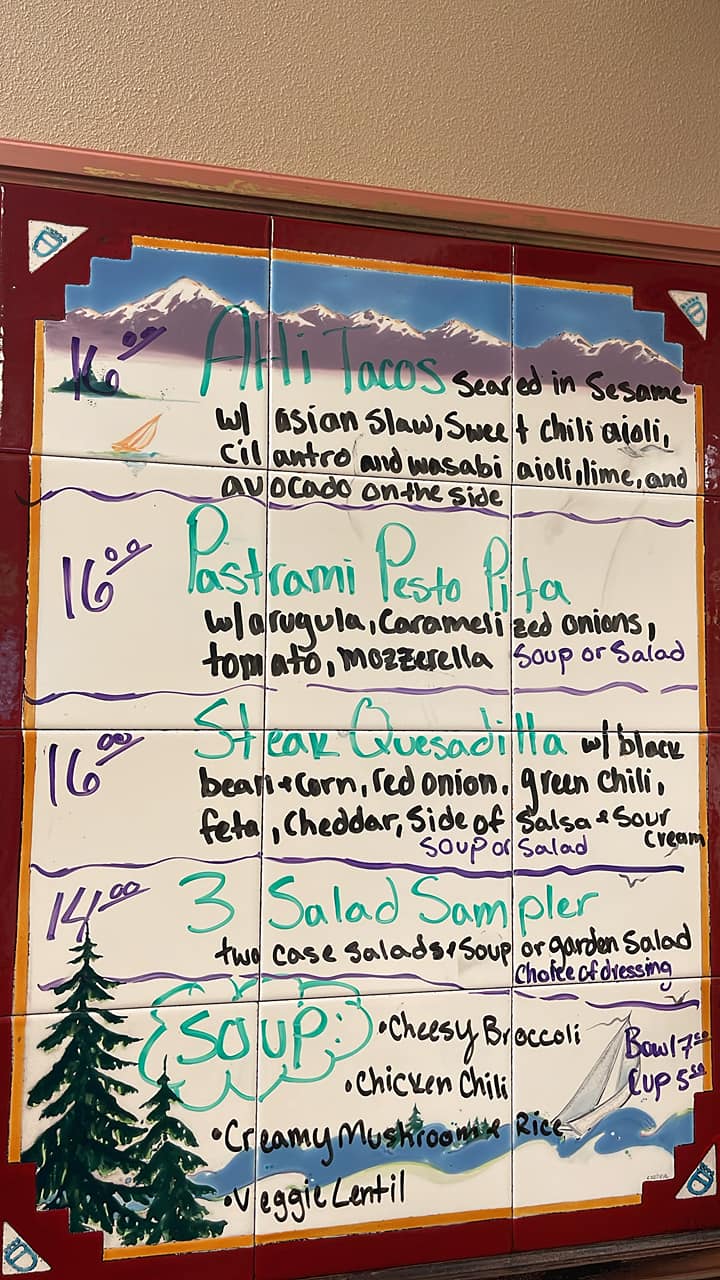 16.00 AHi Tacos Seared in Sesame
w/ asian Slaw, Sweet chili aioli,
cilantro and wasabi aioli, lime, and
avocado on the side
16.00 Pastrami Pesto Pita
w/ arugula, Caramelized onions,
tomato, mozzerella Soup or Salad
16.00 Steak Quesadilla w/ black
bean & Corn, red onion, green Chili,
feta, Cheddar, Side of Salsa & Sour Cream
Soup or Salad
14.00 3 Salad Sampler
two case salads & Soup or garden Salad
Choice of dressing
SOUP:
•Cheesy Broccoli
•Chicken Chili
•Creamy Mushroom & Rice
•Veggie Lentil
Bowl 7.50
Cup 5.50